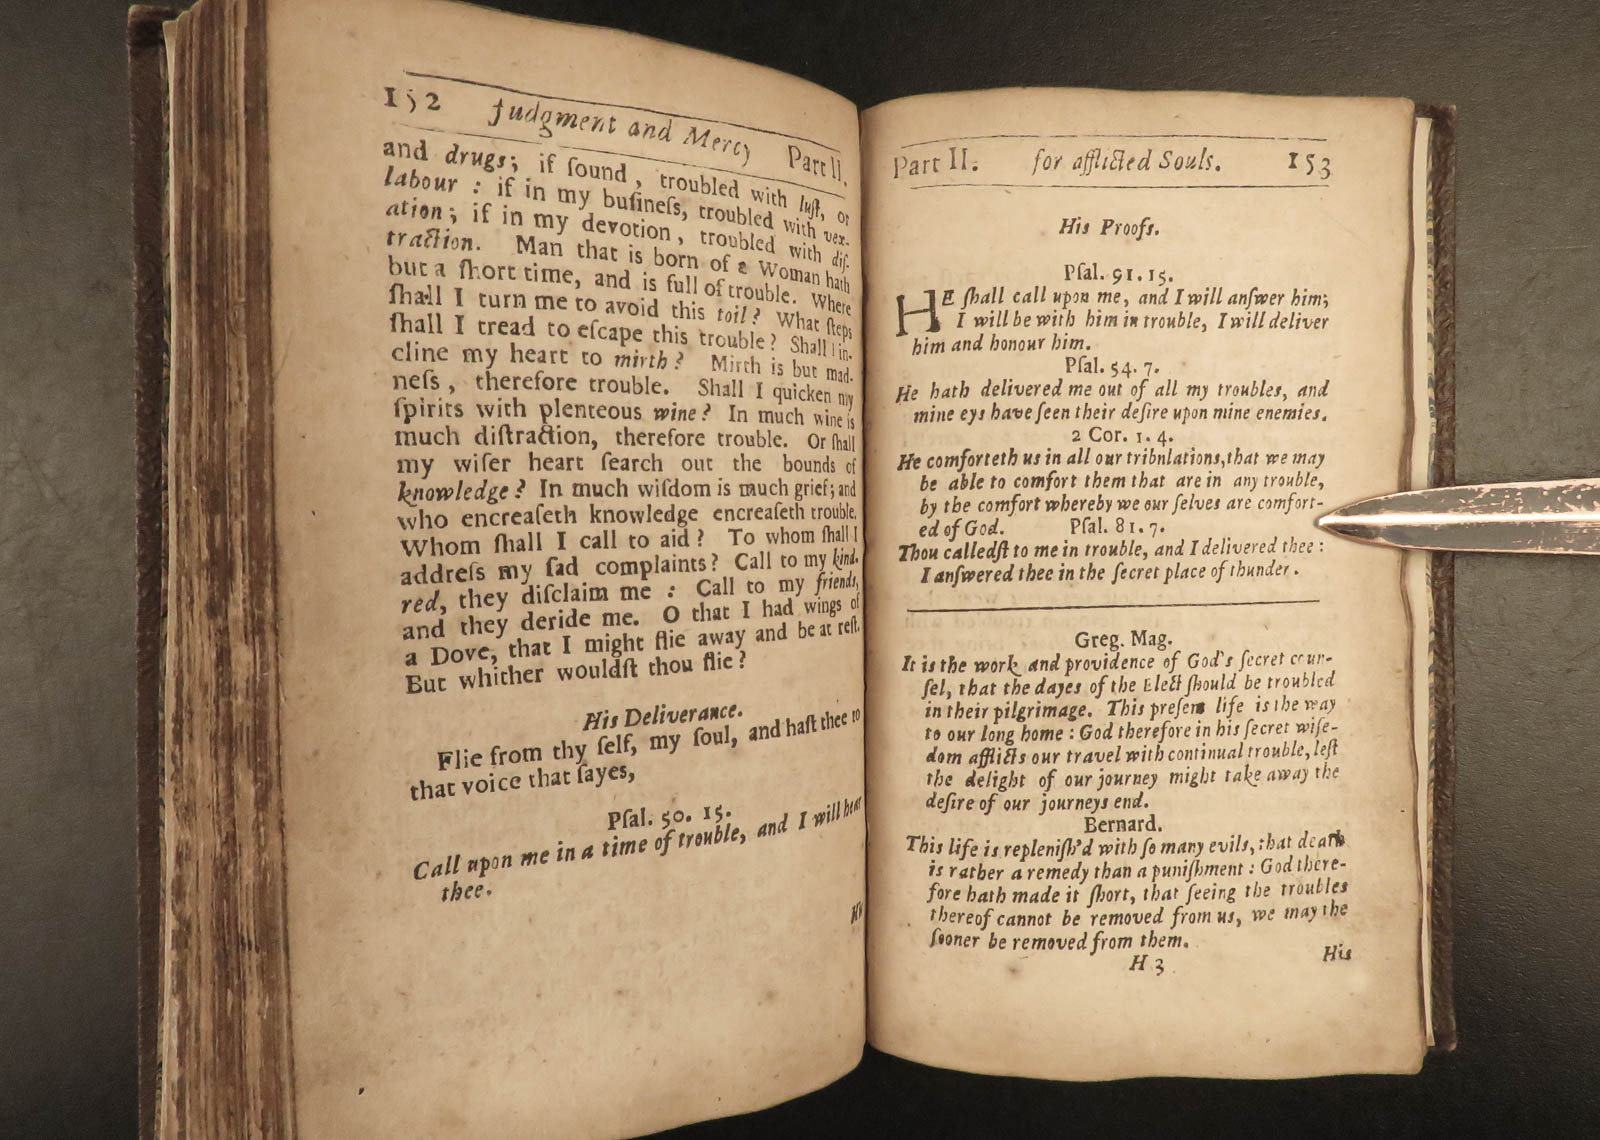 152 Judgment and Mercy Part II.
and drugs; if ſound, troubled with luſt, or
labour: if in my buſineſs, troubled with vex-
ation; if in my devotion, troubled with diſ-
traction. Man that is born of a Woman hath
but a ſhort time, and is full of trouble. Where
ſhall I turn me to avoid this toil? What ſteps
ſhall I tread to eſcape this trouble? Shall I in-
cline my heart to mirth? Mirth is but mad-
neſs, therefore trouble. Shall I quicken my
ſpirits with plenteous wine? In much wine is
much diſtraction, therefore trouble. Or ſhall
my wiſer heart ſearch out the bounds of
knowledge? In much wiſdom is much grief; and
who encreaſeth knowledge encreaſeth trouble.
Whom ſhall I call to aid? To whom ſhall I
addreſs my ſad complaints? Call to my kind-
red, they diſclaim me: Call to my friends,
and they deride me. O that I had wings of
a Dove, that I might flie away and be at reſt.
But whither wouldſt thou flie?
His Deliverance.
Flie from thy ſelf, my ſoul, and haſt thee to
that voice that ſayes,
Pſal. 50. 15.
Call upon me in a time of trouble, and I will hear
thee.
Part II. for afflicted Souls. 153
His Proofs.
Pſal. 91. 15.
HE ſhall call upon me, and I will anſwer him;
I will be with him in trouble, I will deliver
him and honour him.
Pſal. 54. 7.
He hath delivered me out of all my troubles, and
mine eys have ſeen their deſire upon mine enemies.
2 Cor. 1. 4.
He comforteth us in all our tribnlations, that we may
be able to comfort them that are in any trouble,
by the comfort whereby we our ſelves are comfort-
ed of God. Pſal. 81. 7.
Thou calledſt to me in trouble, and I delivered thee:
I anſwered thee in the ſecret place of thunder.
Greg. Mag.
It is the work and providence of God's ſecret coun-
ſel, that the dayes of the Elect ſhould be troubled
in their pilgrimage. This preſent life is the way
to our long home: God therefore in his ſecret wiſe-
dom afflicts our travel with continual trouble, leſt
the delight of our journey might take away the
deſire of our journeys end.
Bernard.
This life is repleniſh'd with ſo many evils, that death
is rather a remedy than a puniſhment: God there-
fore hath made it ſhort, that ſeeing the troubles
thereof cannot be removed from us, we may the
ſooner be removed from them.
H 3 His